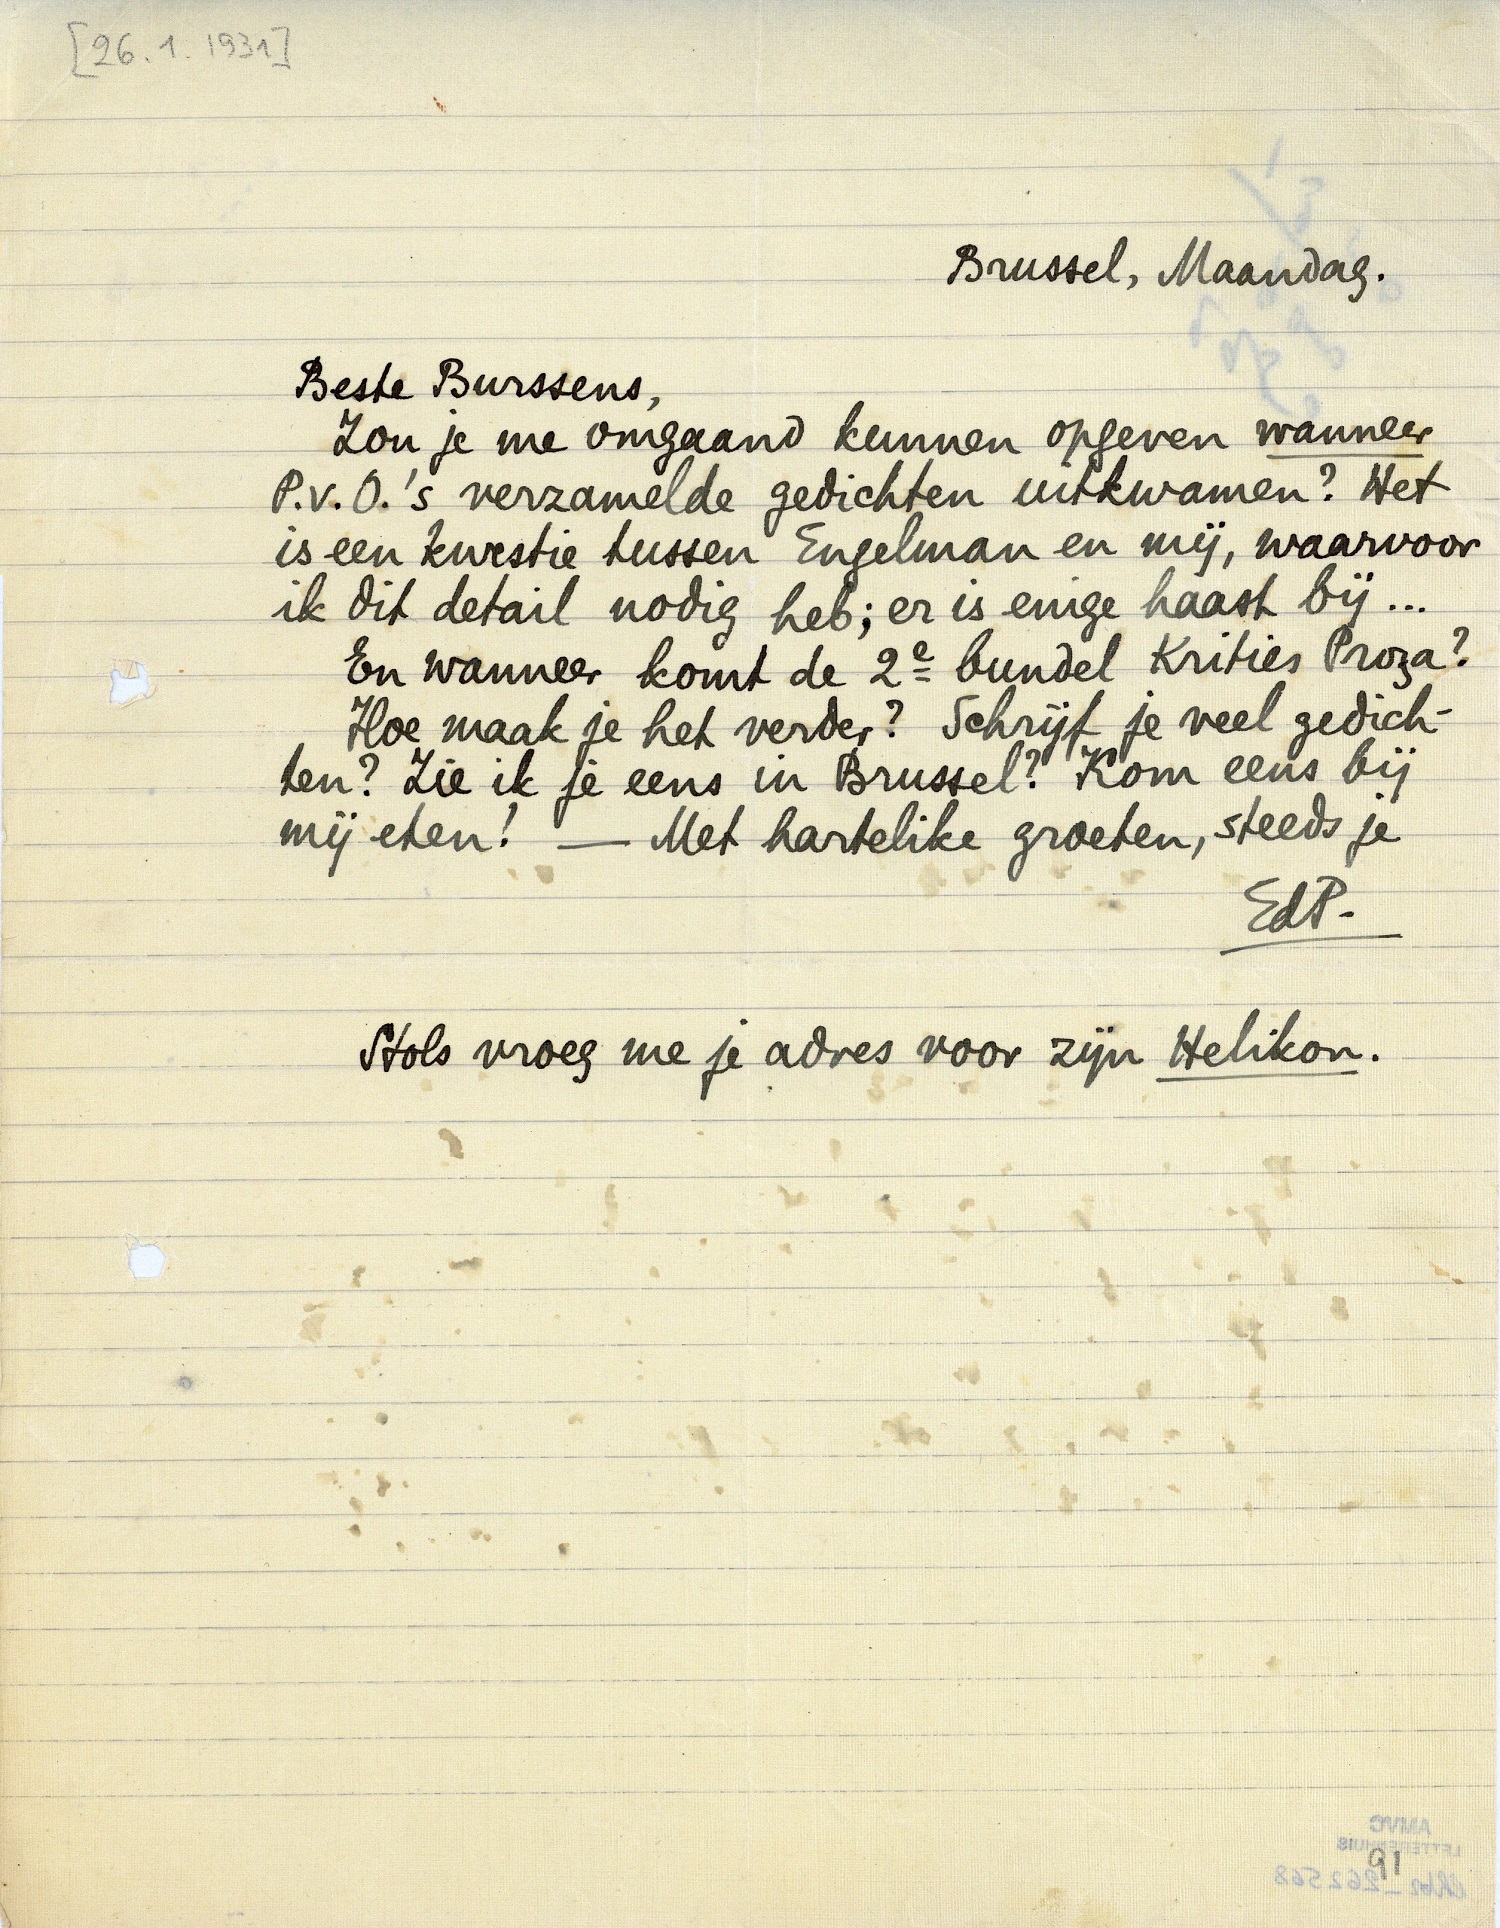 [26.1.1931]
Brussel, Maandag.
Beste Burssens,
Zou je me omgaand kunnen opgeven wanneer
P.v.O.'s verzamelde gedichten uitkwamen? Het
is een kwestie tussen Engelman en mij, waarvoor
ik dit detail nodig heb; er is enige haast bij...
En wanneer komt de 2e bundel Krities Proza?
Hoe maak je het verder? Schrijf je veel gedich-
ten? Zie ik je eens in Brussel? Kom eens bij
mij eten! — Met hartelike groeten, steeds je
EdP.
Stols vroeg me je adres voor zijn Helikon.
AMVC
LETTERENHUIS
91
262568